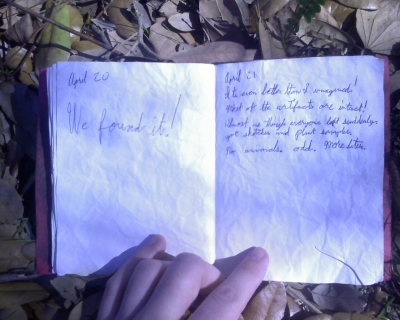 April 20
We found it!
April 21
It's even better than I imagined!
Most of the artifacts are intact!
Almost as though everyone left suddenly.
got sketches and plant samples.
No animals. odd. More later.